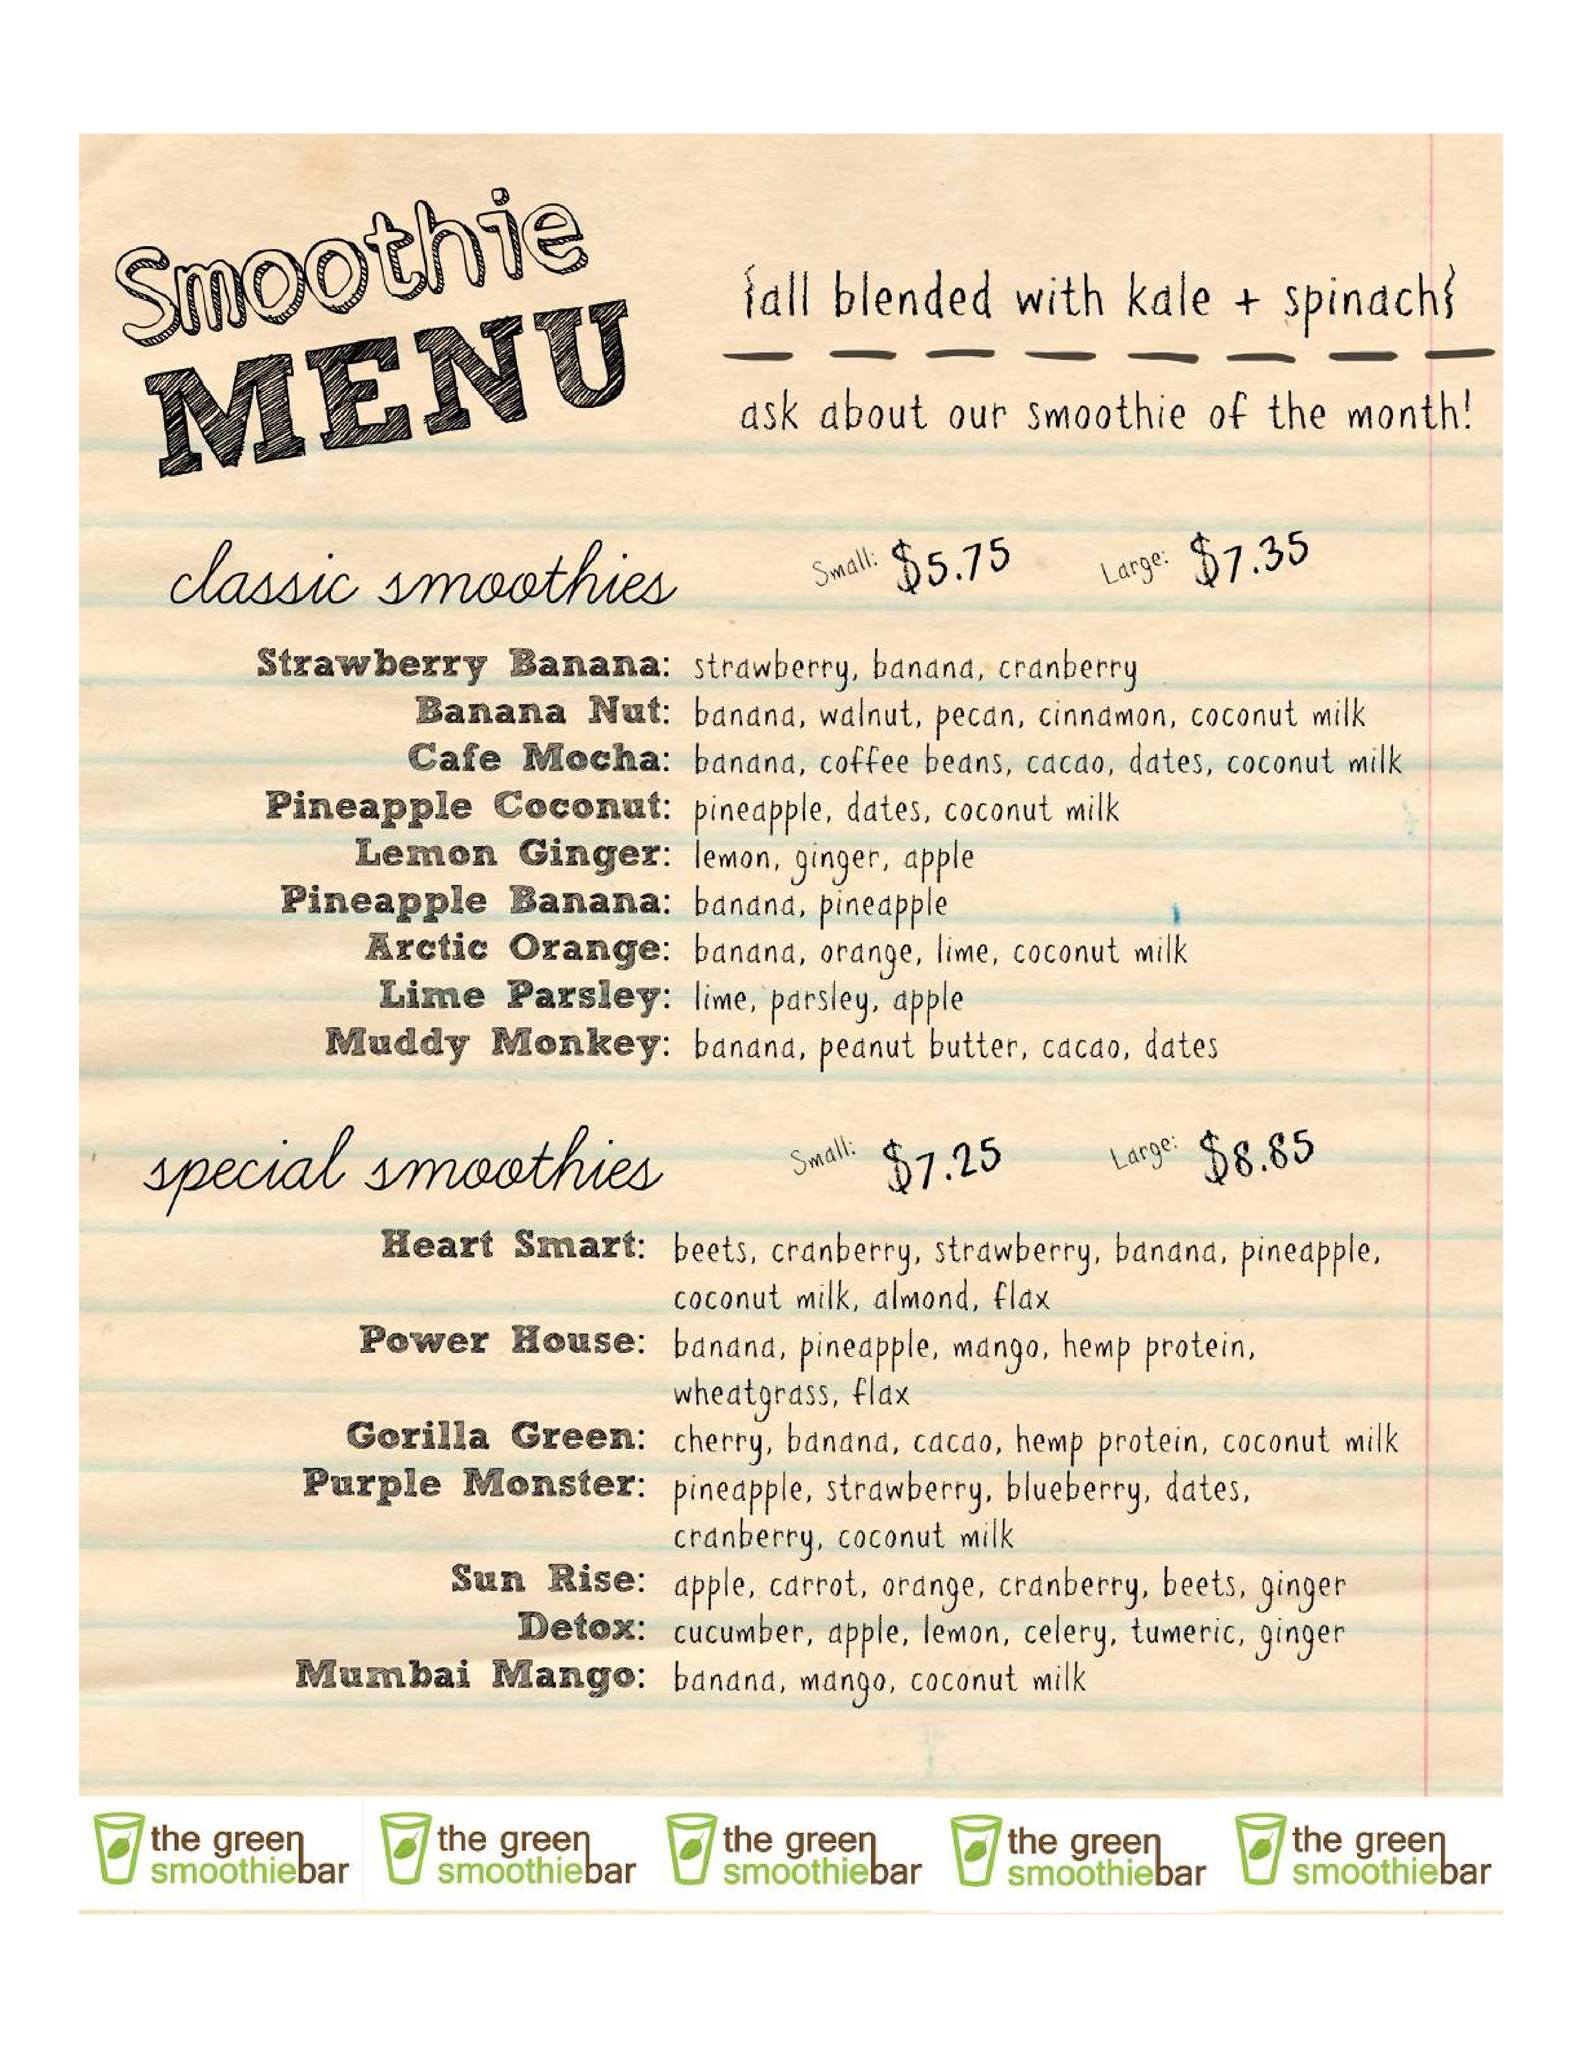 Smoothie
MENU
{all blended with kale + spinach}
ask about our smoothie of the month!
classic smoothies Small: $5.75 Large: $7.35
Strawberry Banana: strawberry, banana, cranberry
Banana Nut: banana, walnut, pecan, cinnamon, coconut milk
Cafe Mocha: banana, coffee beans, cacao, dates, coconut milk
Pineapple Coconut: pineapple, dates, coconut milk
Lemon Ginger: lemon, ginger, apple
Pineapple Banana: banana, pineapple
Arctic Orange: banana, orange, lime, coconut milk
Lime Parsley: lime, parsley, apple
Muddy Monkey: banana, peanut butter, cacao, dates
special smoothies Small: $7.25 Large: $8.85
Heart Smart: beets, cranberry, strawberry, banana, pineapple,
coconut milk, almond, flax
Power House: banana, pineapple, mango, hemp protein,
wheatgrass, flax
Gorilla Green: cherry, banana, cacao, hemp protein, coconut milk
Purple Monster: pineapple, strawberry, blueberry, dates,
cranberry, coconut milk
Sun Rise: apple, carrot, orange, cranberry, beets, ginger
Detox: cucumber, apple, lemon, celery, tumeric, ginger
Mumbai Mango: banana, mango, coconut milk
the green the green the green the green the green
smoothiebar smoothiebar smoothiebar smoothiebar smoothiebar